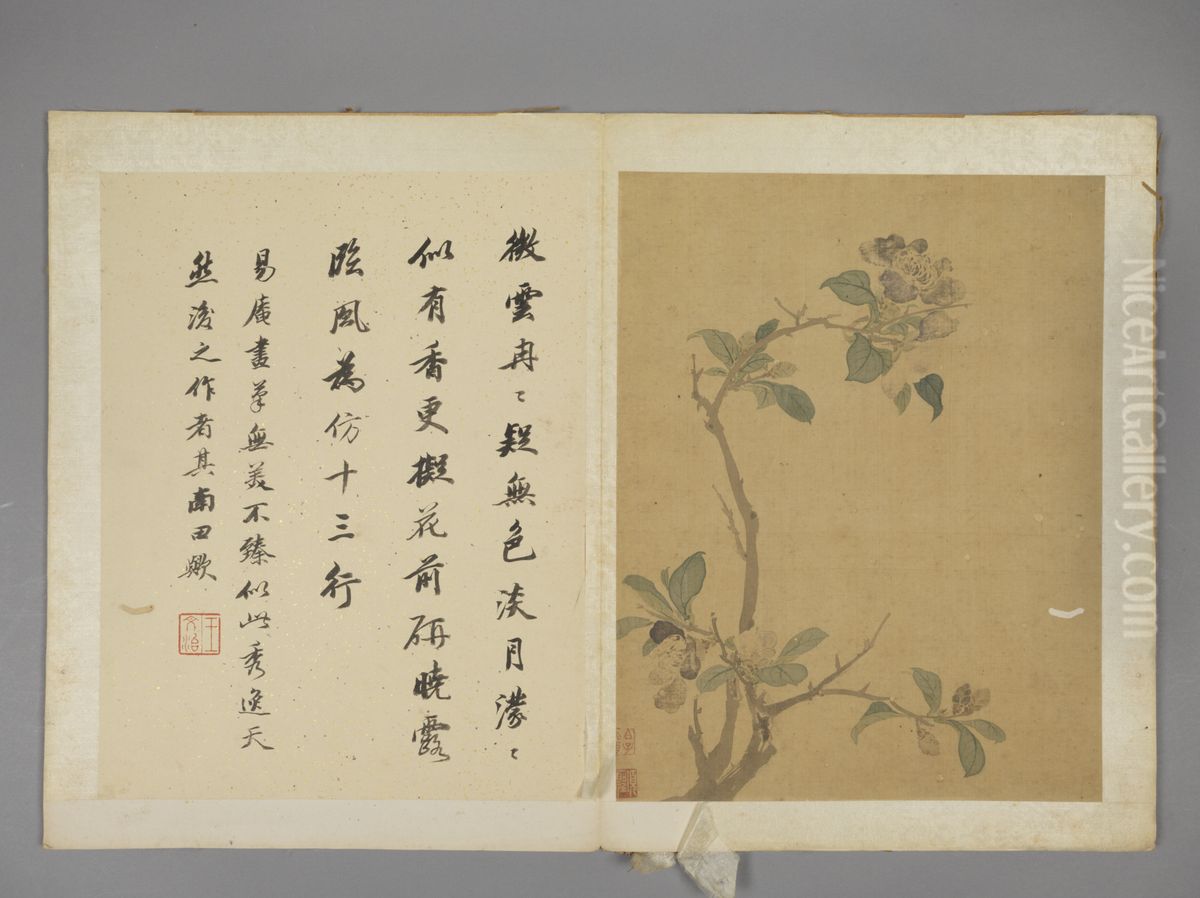 微雲冉〻疑無色淡月濛〻
似有香更擬花前研曉露
臨風為仿十三行
易庵畫筆無美不臻似此秀逸天
然後之作者其南田歟
王文治
NiceArtGallery.com